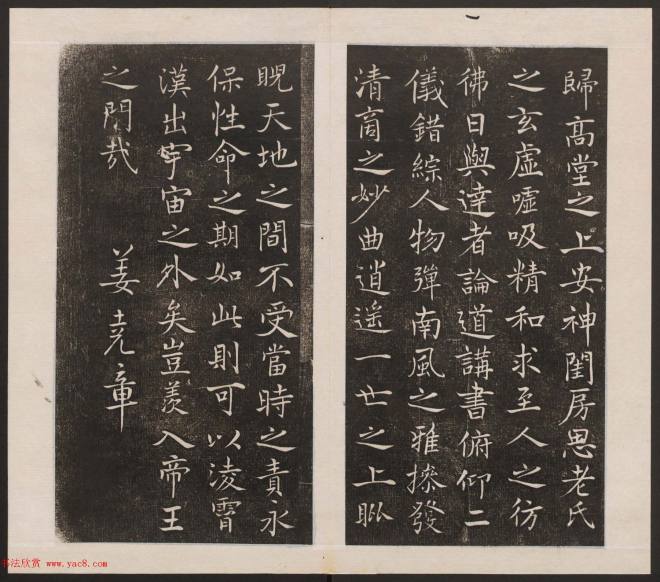 歸高堂之上安神閨房思老氏
之玄虛噓吸精和求至人之彷
彿日與達者論道講書俯仰二
儀錯綜人物彈南風之雅操發
清商之妙曲逍遙一世之上睥
睨天地之間不受當時之責永
保性命之期如此則可以淩霄
漢出宇宙之外矣豈羨入帝王
之門哉
姜堯章
书法欣赏 www.yac8.com